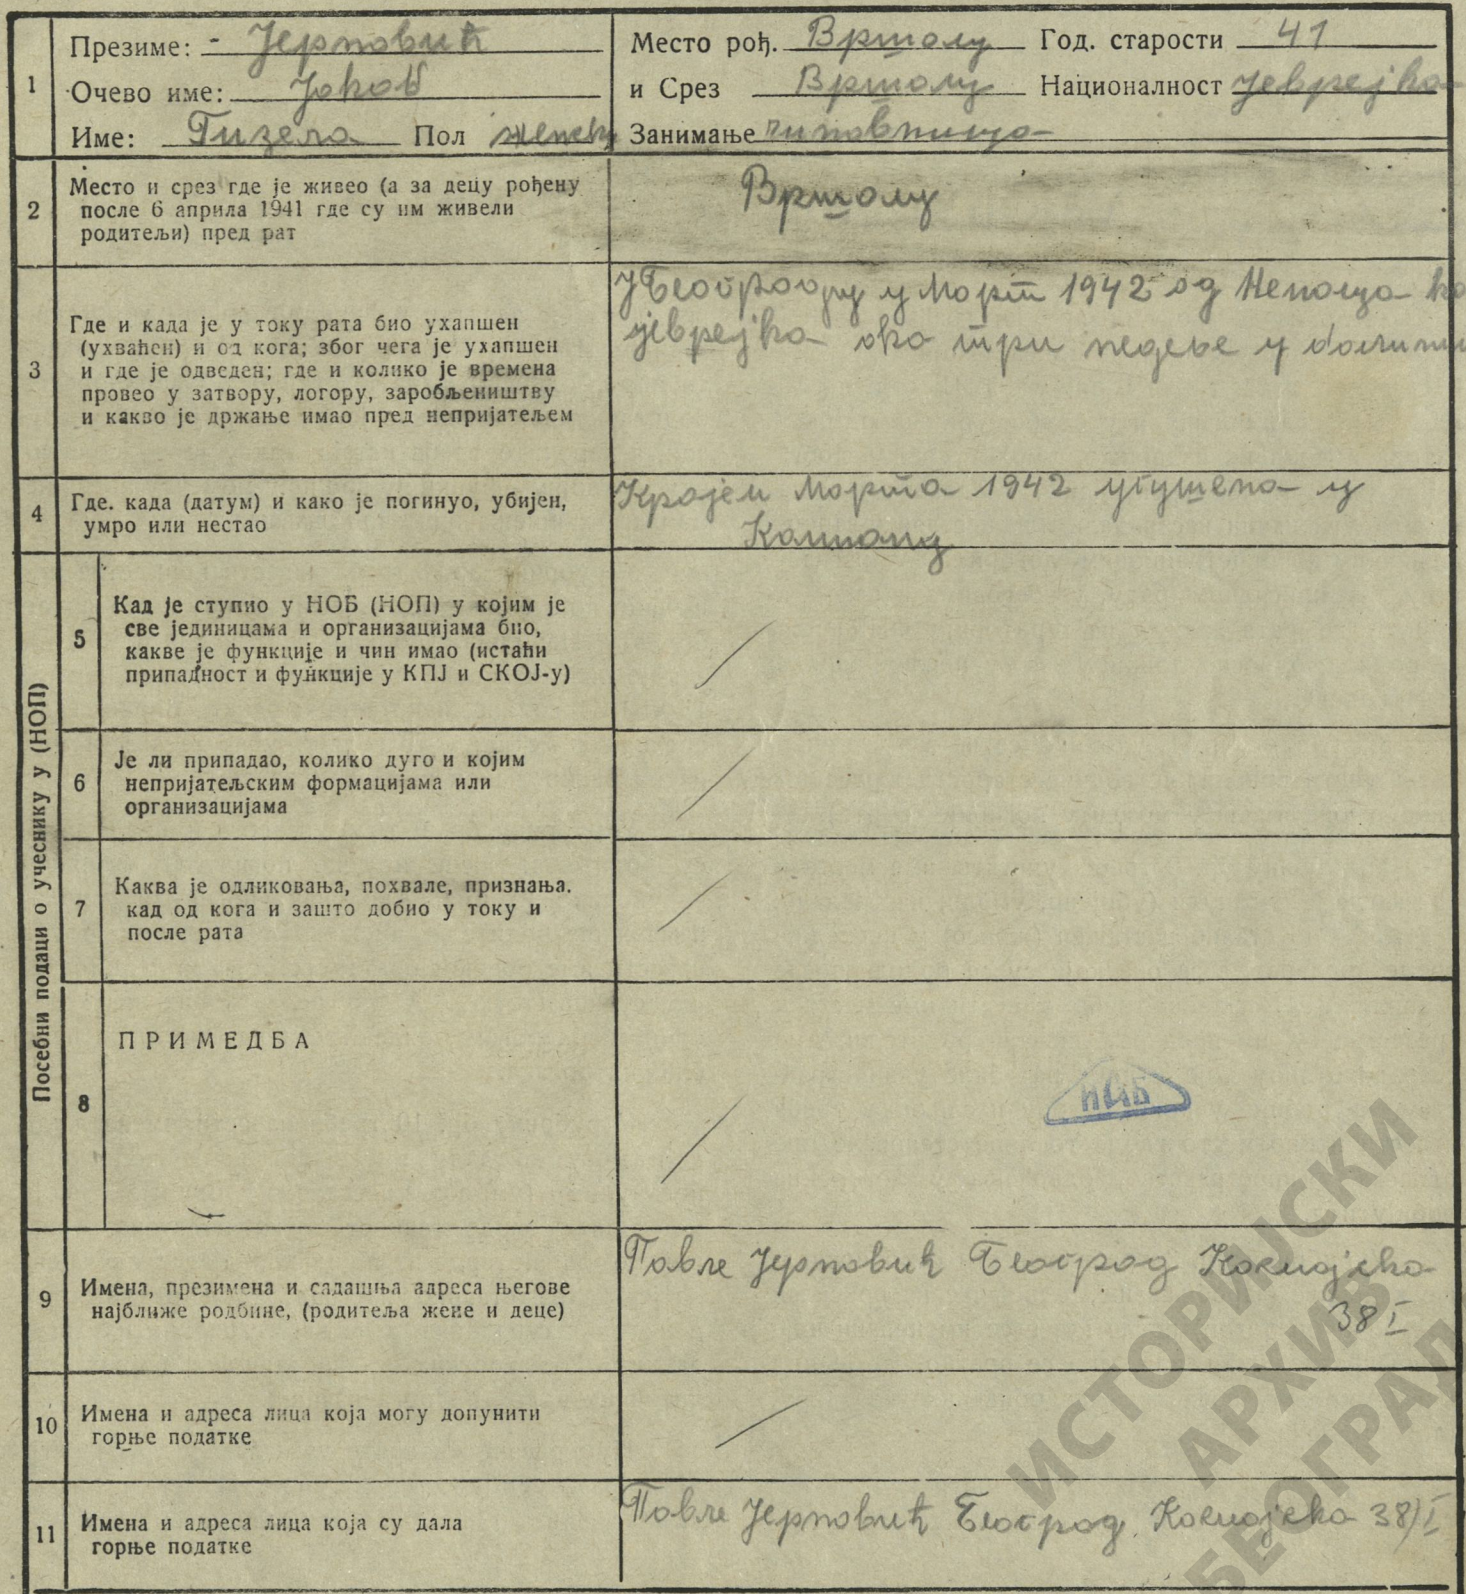 1
Презиме: - Јерповић
Очево име: Јаков
Име: Гизела Пол женски
Место рођ. Вршац Год. старости 41
и Срез Вршац Националност Јеврејка
Занимање чиновница
2
Место и срез где је живео (а за децу рођену
после 6 априла 1941 где су им живели
родитељи) пред рат
Вршац
3
Где и када је у току рата био ухапшен
(ухваћен) и од кога; због чега је ухапшен
и где је одведен; где и колико је времена
провео у затвору, логору, заробљеништву
и какво је држање имао пред непријатељем
У Београду у Март 1942 од Немаца ка
јеврејка око три недеље у
4
Где. када (датум) и како је погинуо, убијен,
умро или нестао
Крајем Марта 1942 угушена у
Посебни подаци о учеснику у (НОП)
5
Кад је ступио у НОБ (НОП) у којим је
све јединицама и организацијама био,
какве је функције и чин имао (истаћи
припадност и функције у КПЈ и СКОЈ-у)
/
6
Је ли припадао, колико дуго и којим
непријатељским формацијама или
организацијама
/
7
Каква је одликовања, похвале, признања.
кад од кога и зашто добио у току и
после рата
/
8
ПРИМЕДБА
/
9
Имена, презимена и садашња адреса његове
најближе родбине, (родитеља жене и деце)
Павле Јерповић Београд Космајска
38 I
10
Имена и адреса лица која могу допунити
горње податке
/
11
Имена и адреса лица која су дала
горње податке
Павле Јерповић Београд. Космајска 38/I
ИСТОРИЈСКИ
АРХИВ
БЕОГРАД